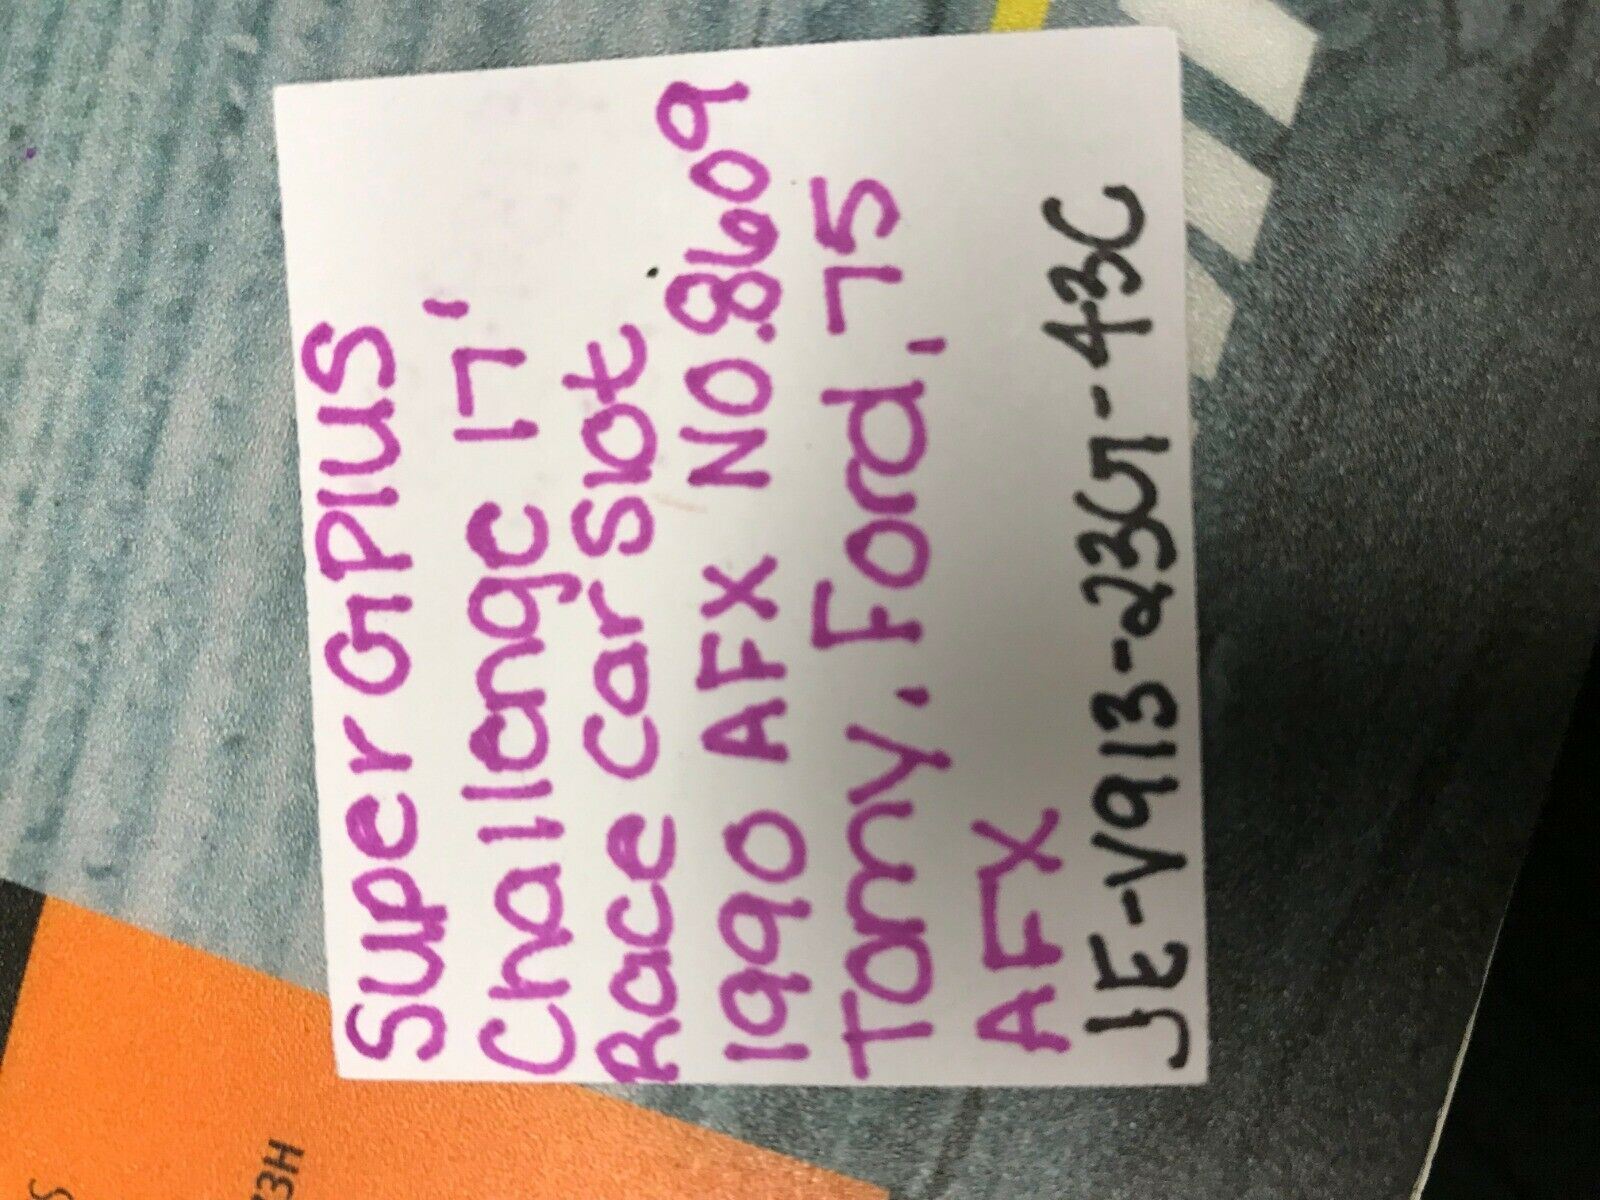 Super G Plus
Challange 17'
Race Car Slot
1990 AFX NO.8609
Tomy, Ford, 75
AFX
JE-V913-23G-43C
3H